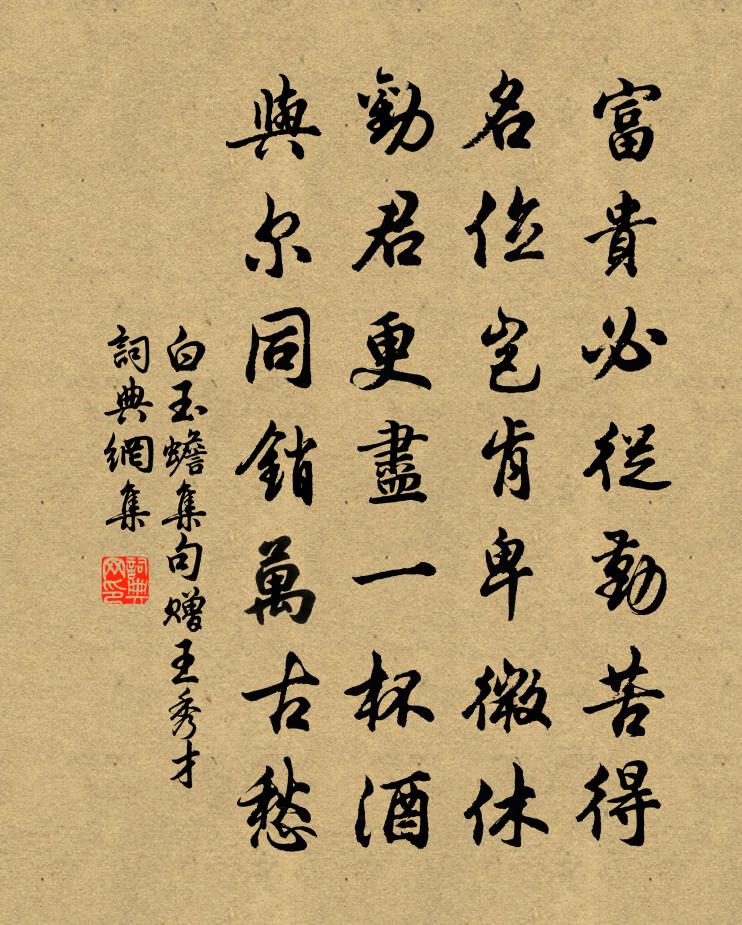 富貴必從勤苦得
名位豈肯卑微休
勸君更盡一杯酒
與尔同銷萬古愁
白玉蟾集句贈王秀才
詞典網集
詞典網印